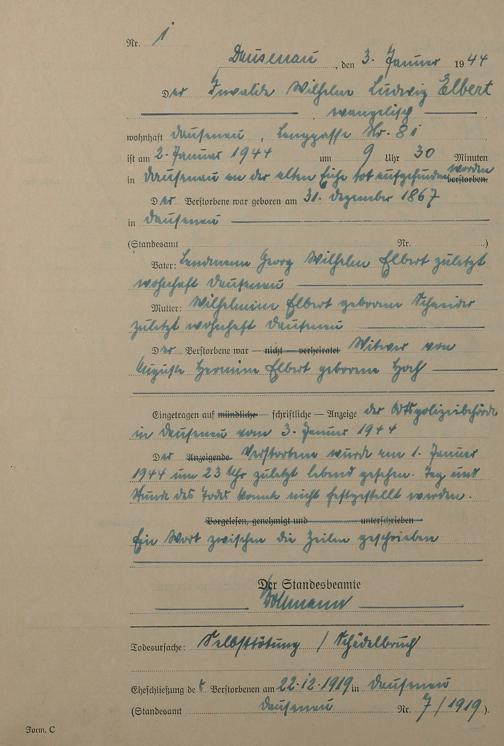 Nr. 1
Dausenau, den 3. Januar 1944
Der Invalide Wilhelm Ludwig Elbert
evangelisch
wohnhaft Dausenau, Langgasse Nr. 81
ist am 2. Januar 1944 um 9 Uhr 30 Minuten
worden
in Dausenau an der alten Eiche tot aufgefunden verstorben.
Der Verstorbene war geboren am 31. Dezember 1867
in Dausenau
(Standesamt Nr. )
Vater: Landmann Georg Wilhelm Elbert zuletzt
wohnhaft Dausenau
Mutter: Wilhelmine Elbert geborene Schneider
zuletzt wohnhaft Dausenau
Der Verstorbene war — nicht — verheiratet Witwer von
Auguste Hermine Elbert geborene Hoch
Eingetragen auf mündliche — schriftliche — Anzeige der Ortspolizeibehörde
in Dausenau vom 3. Januar 1944
Der Anzeigende Verstorbene wurde am 1. Januar
1944 um 23 Uhr zuletzt lebend gesehen. Tag und
Stunde des Todes konnte nicht festgestellt werden.
Vorgelesen, genehmigt und unterschrieben
Ein Wort zwischen die Zeilen geschrieben
Der Standesbeamte
Todesursache: Selbsttötung / Schädelbruch
Eheschließung der Verstorbenen am 22.12.1919 in Dausenau
(Standesamt Dausenau Nr. 7/1919).
Form. C